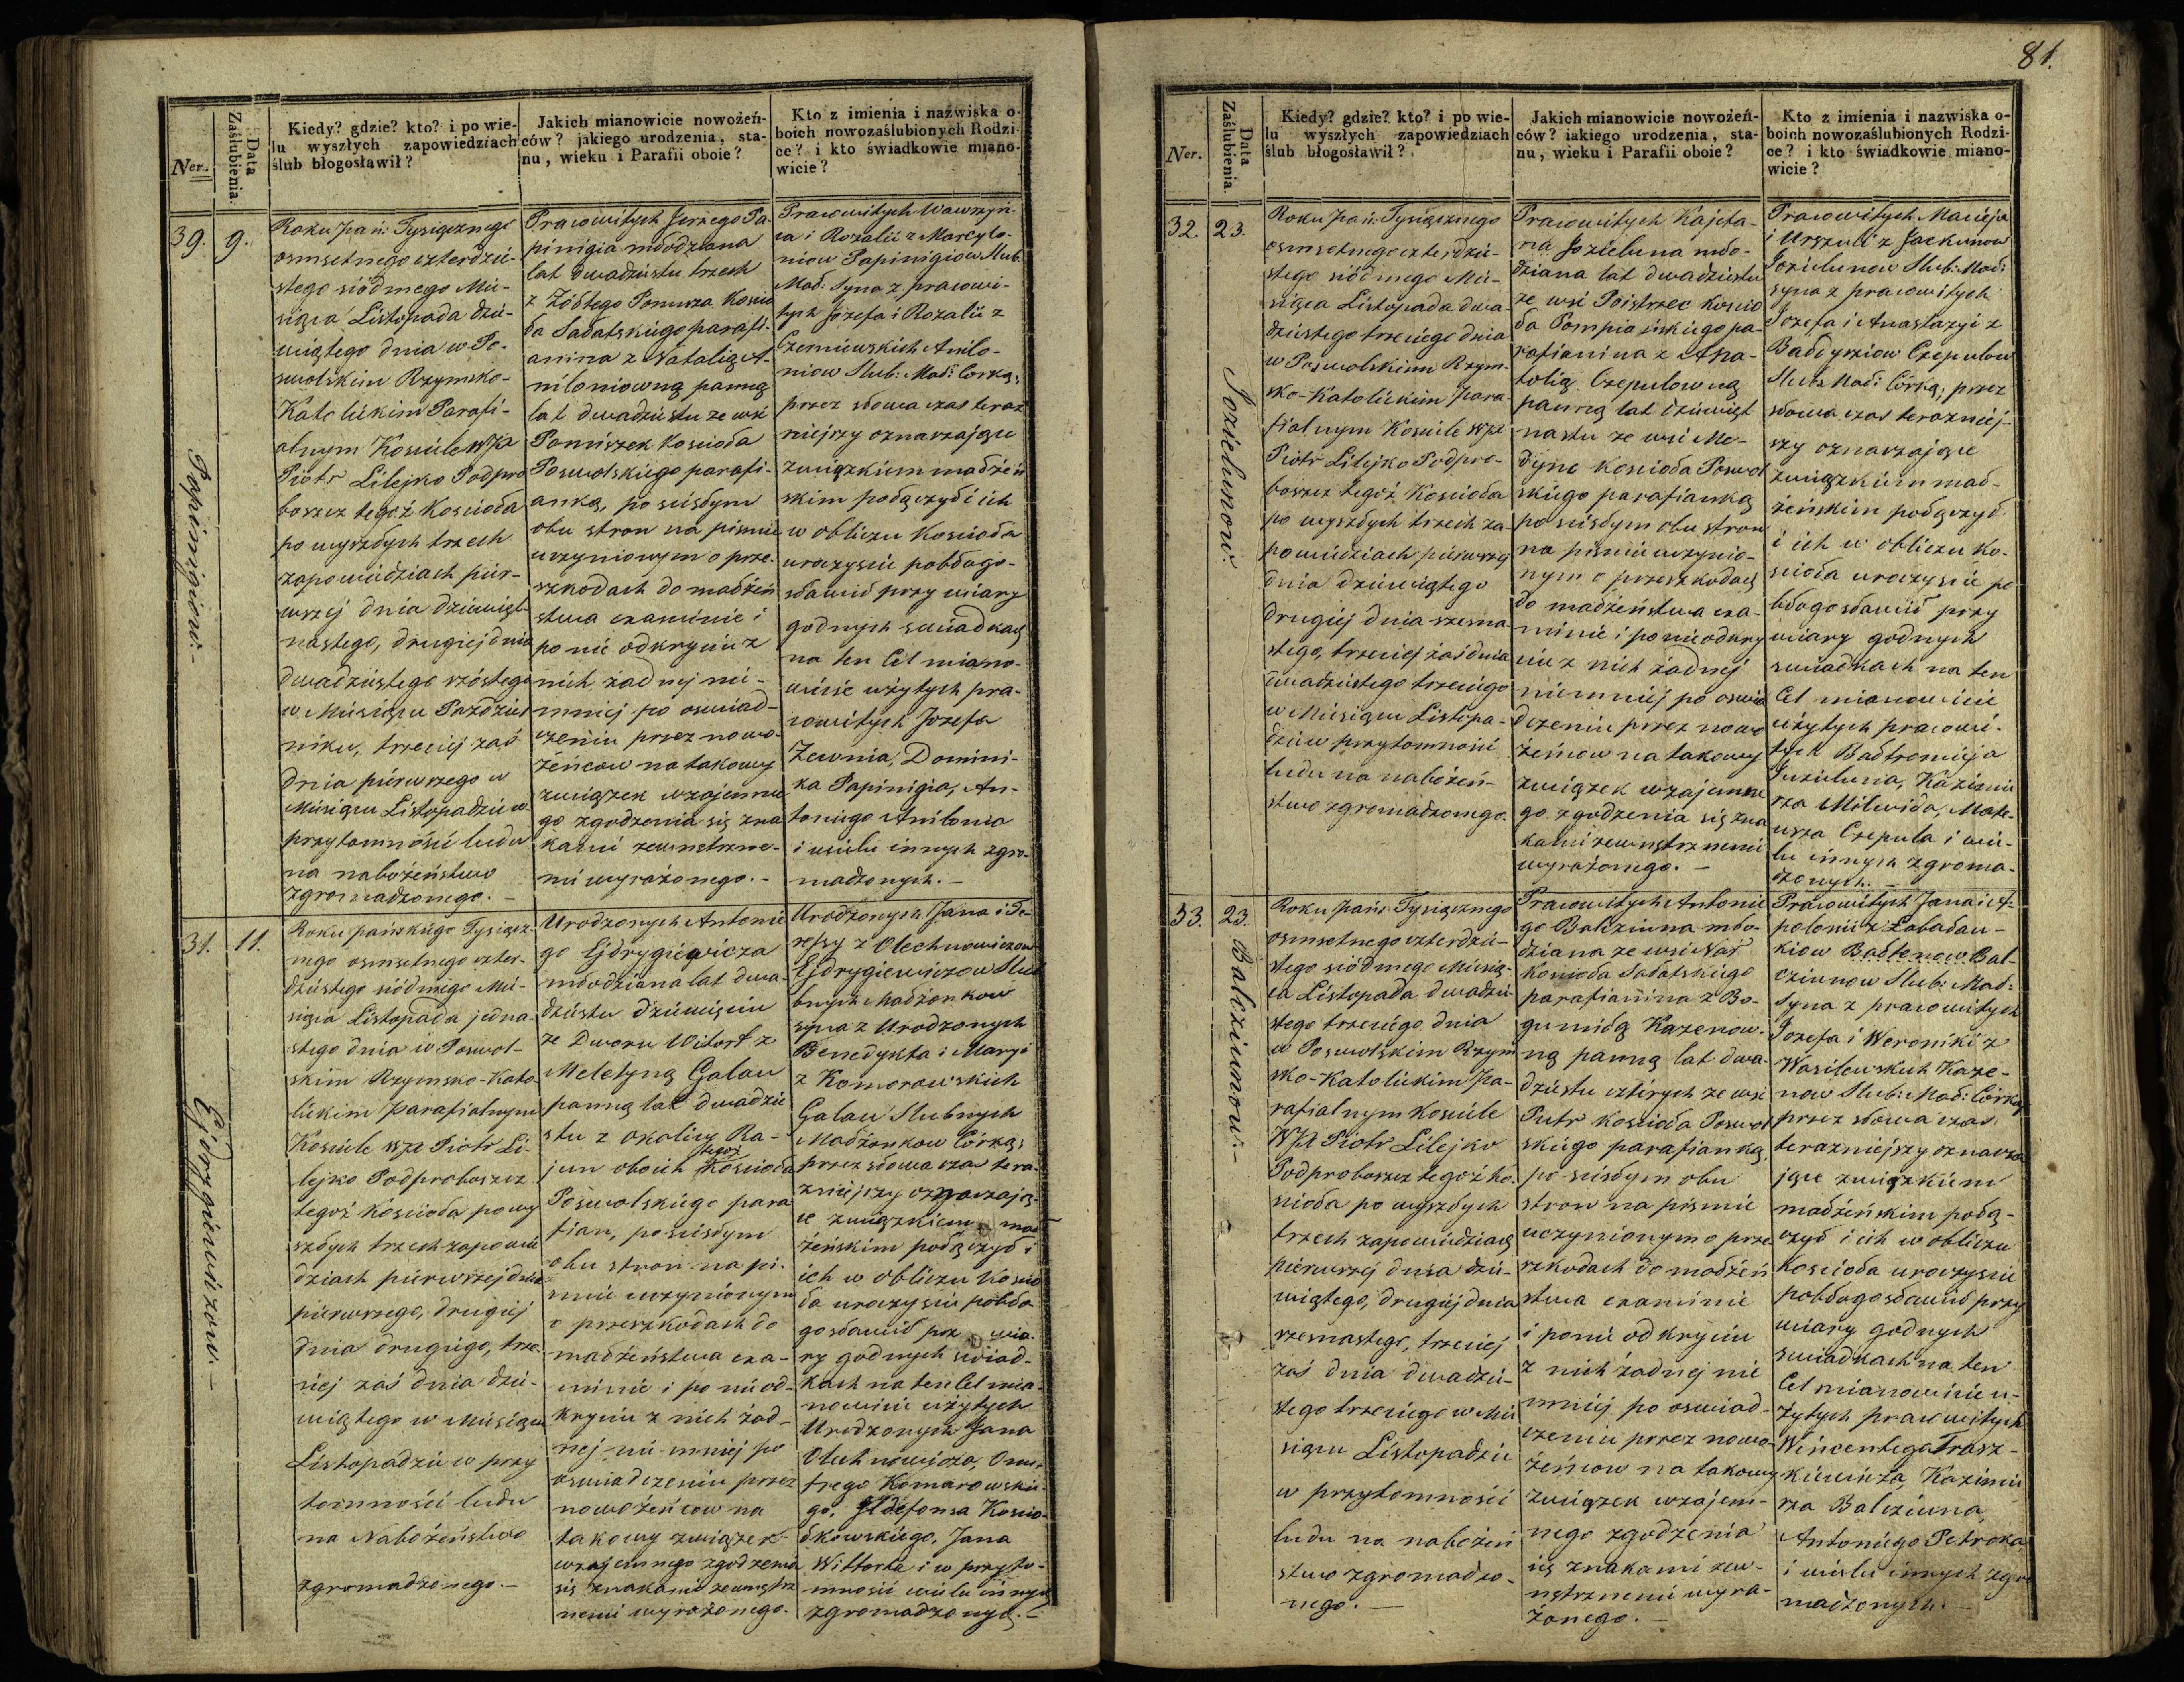 81.
Ner.
Data Zaślubienia.
Kiedy? gdzie? kto? i po wie-
lu wyszłych zapowiedziach
ślub błogosławił?
Jakich mianowicie nowożeń-
ców? jakiego urodzenia, sta-
nu, wieku i Parafii oboie?
Kto z imienia i nazwiska o-
boich nowozaślubionych Rodzi-
ce? i kto świadkowie miano-
wicie?
39. 9.
Papinigiow.-
Roku pań: Tysiącznego
osmsetnego czterdzie-
stego siódmego Mie-
siąca Listopada dzie-
wiątego dnia w Po-
swolskim Rzymsko-
Katolickim Parafi-
alnym Kosciele WJX
Piotr Lilejko Podpro
boszcz tegoż Kościoła
po wyszłych trzech
zapowiedziach pier-
wszej dnia dziewięt-
nastego, drugiej dnia
dwadziestego szóstego
w Miesiącu Paździer
niku, trzeciej zaś
dnia pierwszego w
Miesiącu Listopadzie w
przytomności ludu
na nabożeństwo
zgromadzonego. -
Pracowitych Jerzego Pa-
pinigia młodziana
lat dwadziestu trzech
z Żółtego Ponurza Koscio
ła Sałatskiego parafi-
anina z Natalią A-
niloniowną panną
lat dwadziestu ze wsi
Pamiszek Koscioła
Poswolskiego parafi-
anką, po scisłym
obu stron na pismie
uczyniowym o prze-
szkodach do małżeń
stwa examinie i
po nie odkryciu z
nich żadnej nie-
mniej po oswiad-
czeniu przez nowo-
żeńcow na takowy
związek wzajemne
go zgodzenia się zna
kami zewnętrzne-
mi wyrażonego.-
Pracowitych Wawrzyń-
ca i Rozalii z Marcylo-
niow Papinigiow Slub:
Małż: Syna z pracowi-
tych Jozefa i Rozalii z
Czerniewskich Anilo-
niow Slub: Mał: Corką;
przez słowa czas teraz
niejszy oznaczające
związkiem małżeń
skim połączył i ich
w obliczu Koscioła
uroczyscie pobłogo-
sławił przy wiary
godnych swiadkach
na ten Cel miano-
wicie użytych pra-
cowitych Jozefa
Żewnia, Domini-
ka Papinigia, An-
toniego Anilonia
i wielu innych zgro-
madzonych. -
31. 11.
Ejdrygiewiczow.-
Roku pańskiego Tysiącz-
nego osmsetnego czter-
dziestego siódmego Mie-
siąca Listopada jedna-
stego dnia w Poswol-
skim Rzymsko-Kato
lickim Parafialnym
Kosciele WJX Piotr Li-
lejko Podproboszcz
tegoż Kościoła po wy
szłych trzech zapowie
dziach pierwszej dnia
pierwszego, drugiej
dnia drugiego, trze-
ciej zaś dnia dzie-
wiątego w Miesiącu
Listopadzie w przy
tomności ludu
na Nabożeństwo
zgromadzonego.-
Urodzonych Antonie
go Ejdrygiewicza
młodziana lat dwa-
dziestu dziewięciu
ze Dworu Witort z
Meletyną Galau
panną lat dwadzie
stu z okolicy Ra-
jun oboich tegoż Koscioła
Poswolskiego para
fian, po scisłym
obu stron na pi-
smie uczynionym
o przeszkodach do
małżeństwa exa-
minie i po nie od-
kryciu z nich żad-
nej nie mniej po
oswiadczeniu przez
nowożeńcow na
takowy związek
wzajemnego zgodzenia
się znakami zewnętrz
nemi wyrażonego.
Urodzonych Jana i Te-
ressy z Olechnowiczow
Ejdrygiewiczow Slu
bnych Małżonkow
syna z Urodzonych
Benedykta i Maryi
z Komorowskich
Galau Slubnych
Małżonkow Córką;
przez słowa czas tera-
zniejszy oznaczają-
ce związkiem mał
żeńskim połączył i
ich w obliczu Koscio
ła uroczyscie pobło
gosławił prz wia-
ry godnych swiad-
kach na ten Cel mia-
nowicie użytych
Urodzonych Jana
Olechnowicza, Onu-
frego Komarowskie
go, Ildefonsa Koscio-
łkowskiego, Jana
Wittorta i w przyto-
mnosci wielu innych
zgromadzonych.-
Ner.
Data Zaślubienia.
Kiedy? gdzie? kto? i po wie-
lu wyszłych zapowiedziach
ślub błogosławił?
Jakich mianowicie nowożeń-
ców? iakiego urodzenia, sta-
nu, wieku i Parafii oboie?
Kto z imienia i nazwiska o-
boich nowozaślubionych Rodzi-
ce? i kto świadkowie miano-
wicie?
32. 23.
Jozielunow.
Roku pań: Tysiącznego
osmsetnego czterdzie-
stego siódmego Mie-
siąca Listopada dwa-
dziestego trzeciego dnia
w Poswolskim Rzym-
sko-Katolickim Para
fialnym Kosciele WJX
Piotr Lilejko Podpro-
boszcz tegoż Kościoła
po wyszłych trzech za-
powiedziach pierwszej
dnia dziewiątego
drugiej dnia szesna
stego, trzeciej zaś dnia
dwadziestego trzeciego
w Miesiącu Listopa-
dzie w przytomności
ludu na nabożeń-
stwo zgromadzonego.
Pracowitych Kajeta-
na Jozieluna mło-
dziana lat dwadziestu
ze wsi Poistrzec Koscio
ła Pompiańskiego pa-
rafianina z Ana-
tolią Czepulowną
panną lat dziewięt
nastu ze wsi Me-
dyne koscioła Poswol
skiego parafianką
po scisłym obu stron
na pismie uczynio-
nym o przeszkodach
do małżeństwa exa-
minie i po nie odkry
ciu z nich żadnej
niemniej po oswia
dczeniu przez nowo
żeńcow na takowy
związek wzajemne
go zgodzenia się zna
kami zewnętrznemi
wyrażonego. -
Pracowitych Macieja
i Urszuli z Jackunow
Jozielunow Slub: Mał:
syna z pracowitych
Jozefa i Anastazyi z
Bałdysziow Czepulow
Slub: Mał: Córką; przez
słowa czas terazniej-
szy oznaczające
związkiem mał-
żeńskim połączył
i ich w obliczu Ko-
scioła uroczyscie po
błogosławił przy
wiary godnych
swiadkach na ten
Cel mianowicie
użytych pracowi-
tych Bałtromieja
Juzieluna, Kazimie
rza Milewida, Mate-
usza Czepula i wie-
lu innych zgroma-
dzonych. -
33. 23.
Balcziunow.-
Roku pańs: Tysiącznego
osmsetnego czterdzie-
stego siódmego Miesią-
ca Listopada dwadzie-
stego trzeciego dnia
w Poswolskim Rzym
sko-Katolickim Pa-
rafialnym Kosciele
WJX Piotr Lilejko
Podproboszcz tegoż Ko-
scioła po wyszłych
trzech zapowiedziach
pierwszej dnia dzie-
wiątego, drugiej dnia
szesnastego, trzeciej
zaś dnia dwadzie-
stego trzeciego w Mie
siącu Listopadzie
w przytomności
ludu na nabożeń
stwo zgromadzo-
nego. -
Pracowitych Antonie
go Balcziuna mło-
dziana ze wsi Nar
Koscioła Sałatskiego
parafianina z Bo-
gumiłą Kazenow-
ną panną lat dwa-
dziestu cztérych ze wsi
Putr Koscioła Poswol
skiego parafianką,
po scisłym obu
stron na pismie
uczynionym o prze-
szkodach do małżeń
stwa examinie
i po nie odkryciu
z nich żadnej nie
mniej po oswiad-
czeniu przez nowo-
żeńcow na takowy
związek wzajem-
nego zgodzenia
się znakami zew-
nętrznemi wyra-
żonego. -
Pracowitych Jana i A-
polonii z Łabadau-
kiow Bałtenow Bal-
cziunow Slub: Mał:
Syna z pracowitych
Jozefa i Weroniki z
Wasilewskich Kaze-
now Slub: Mał: Córką
przez słowa czas
terazniejszy oznacza
jące związkiem
małżeńskim połą-
czył i ich w obliczu
Koscioła uroczyscie
pobłogosławił przy
wiary godnych
swiadkach na ten
Cel mianowicie u-
żytych pracowitych
Wincentego Trasz-
kiewicza, Kazimie
rza Balcziuna,
Antoniego Petroka
i wielu innych zgro
madzonych. -